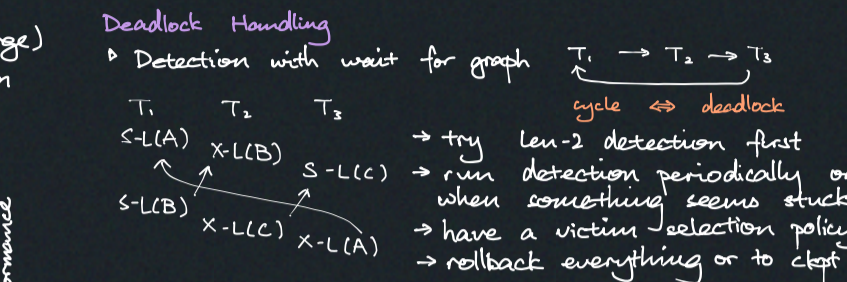 Deadlock Handling
ge)
n
▹ Detection with wait for graph T₁ → T₂ → T₃
cycle ⇔ deadlock
T₁ T₂ T₃
S-L(A)
X-L(B)
S-L(C)
S-L(B)
X-L(C)
X-L(A)
→ try len-2 detection first
→ run detection periodically or
when something seems stuck
→ have a victim selection policy
→ rollback everything or to ckpt
ormance